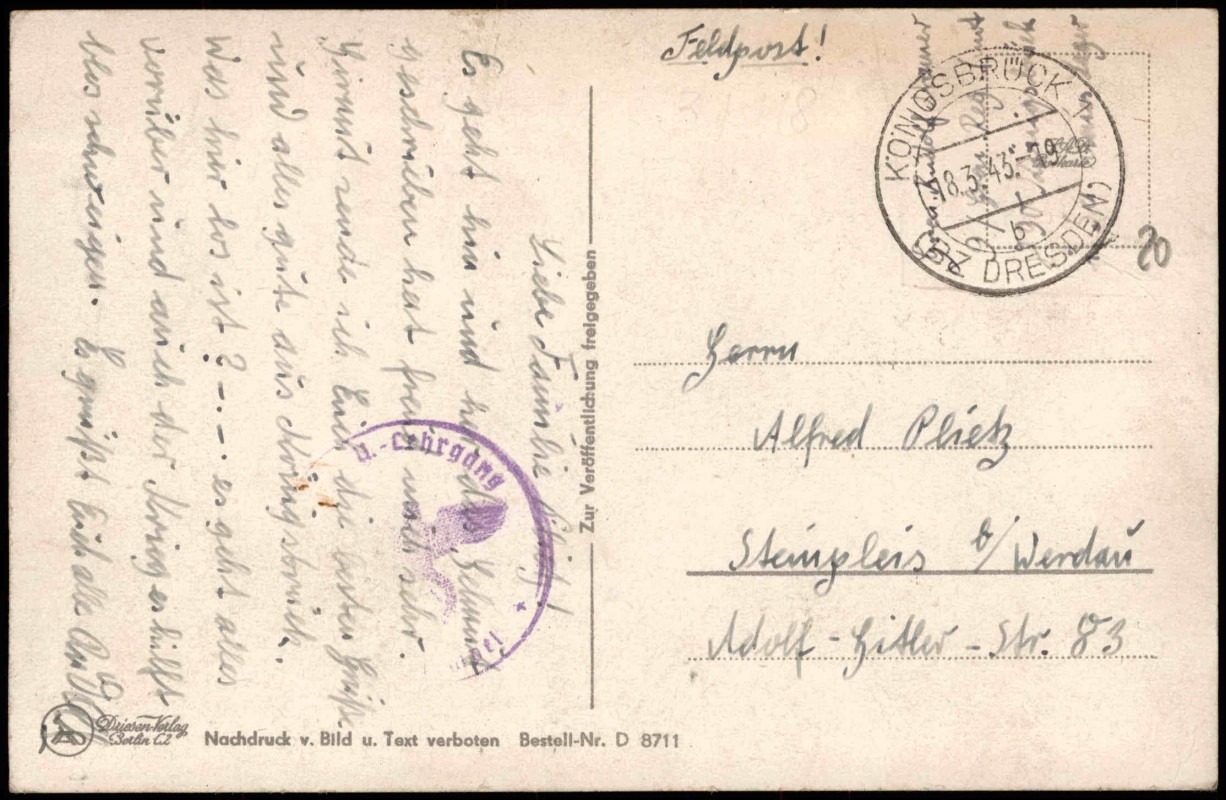 Feldpost!
KÖNIGSBRÜCK
18.3.43.-19
b
(BZ DRESDEN)
20
Herrn
Alfred Plietz
Steinpleis b/Werdau
Adolf-Hitler-Str. 83
Liebe Familie
Es geht hin und her, das Helmut
geschrieben hat freut mich sehr.
Hiermit sende ich Euch die besten Grüße
und alles gute aus Königsbrück.
Was hier los ist? -.-. es geht alles
vorrüber und auch der Krieg es hilft
blos schweigen. Es grüßt Euch alle
Zur Veröffentlichung freigegeben
-Lehrgang
Driesen-Verlag
Berlin C2
Nachdruck v. Bild u. Text verboten Bestell-Nr. D 8711